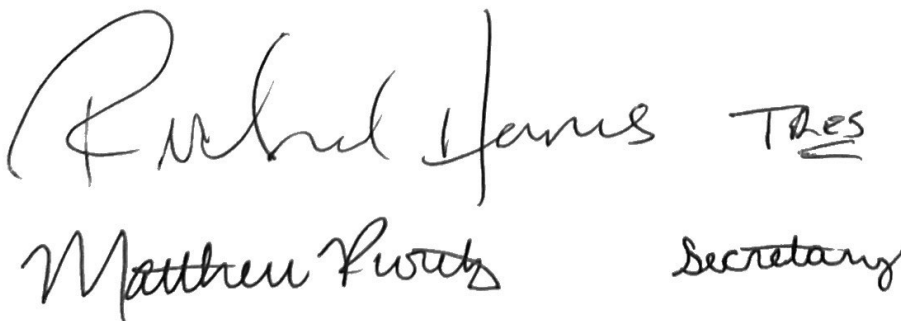 Richard Harris TRES
Matthew Secretary